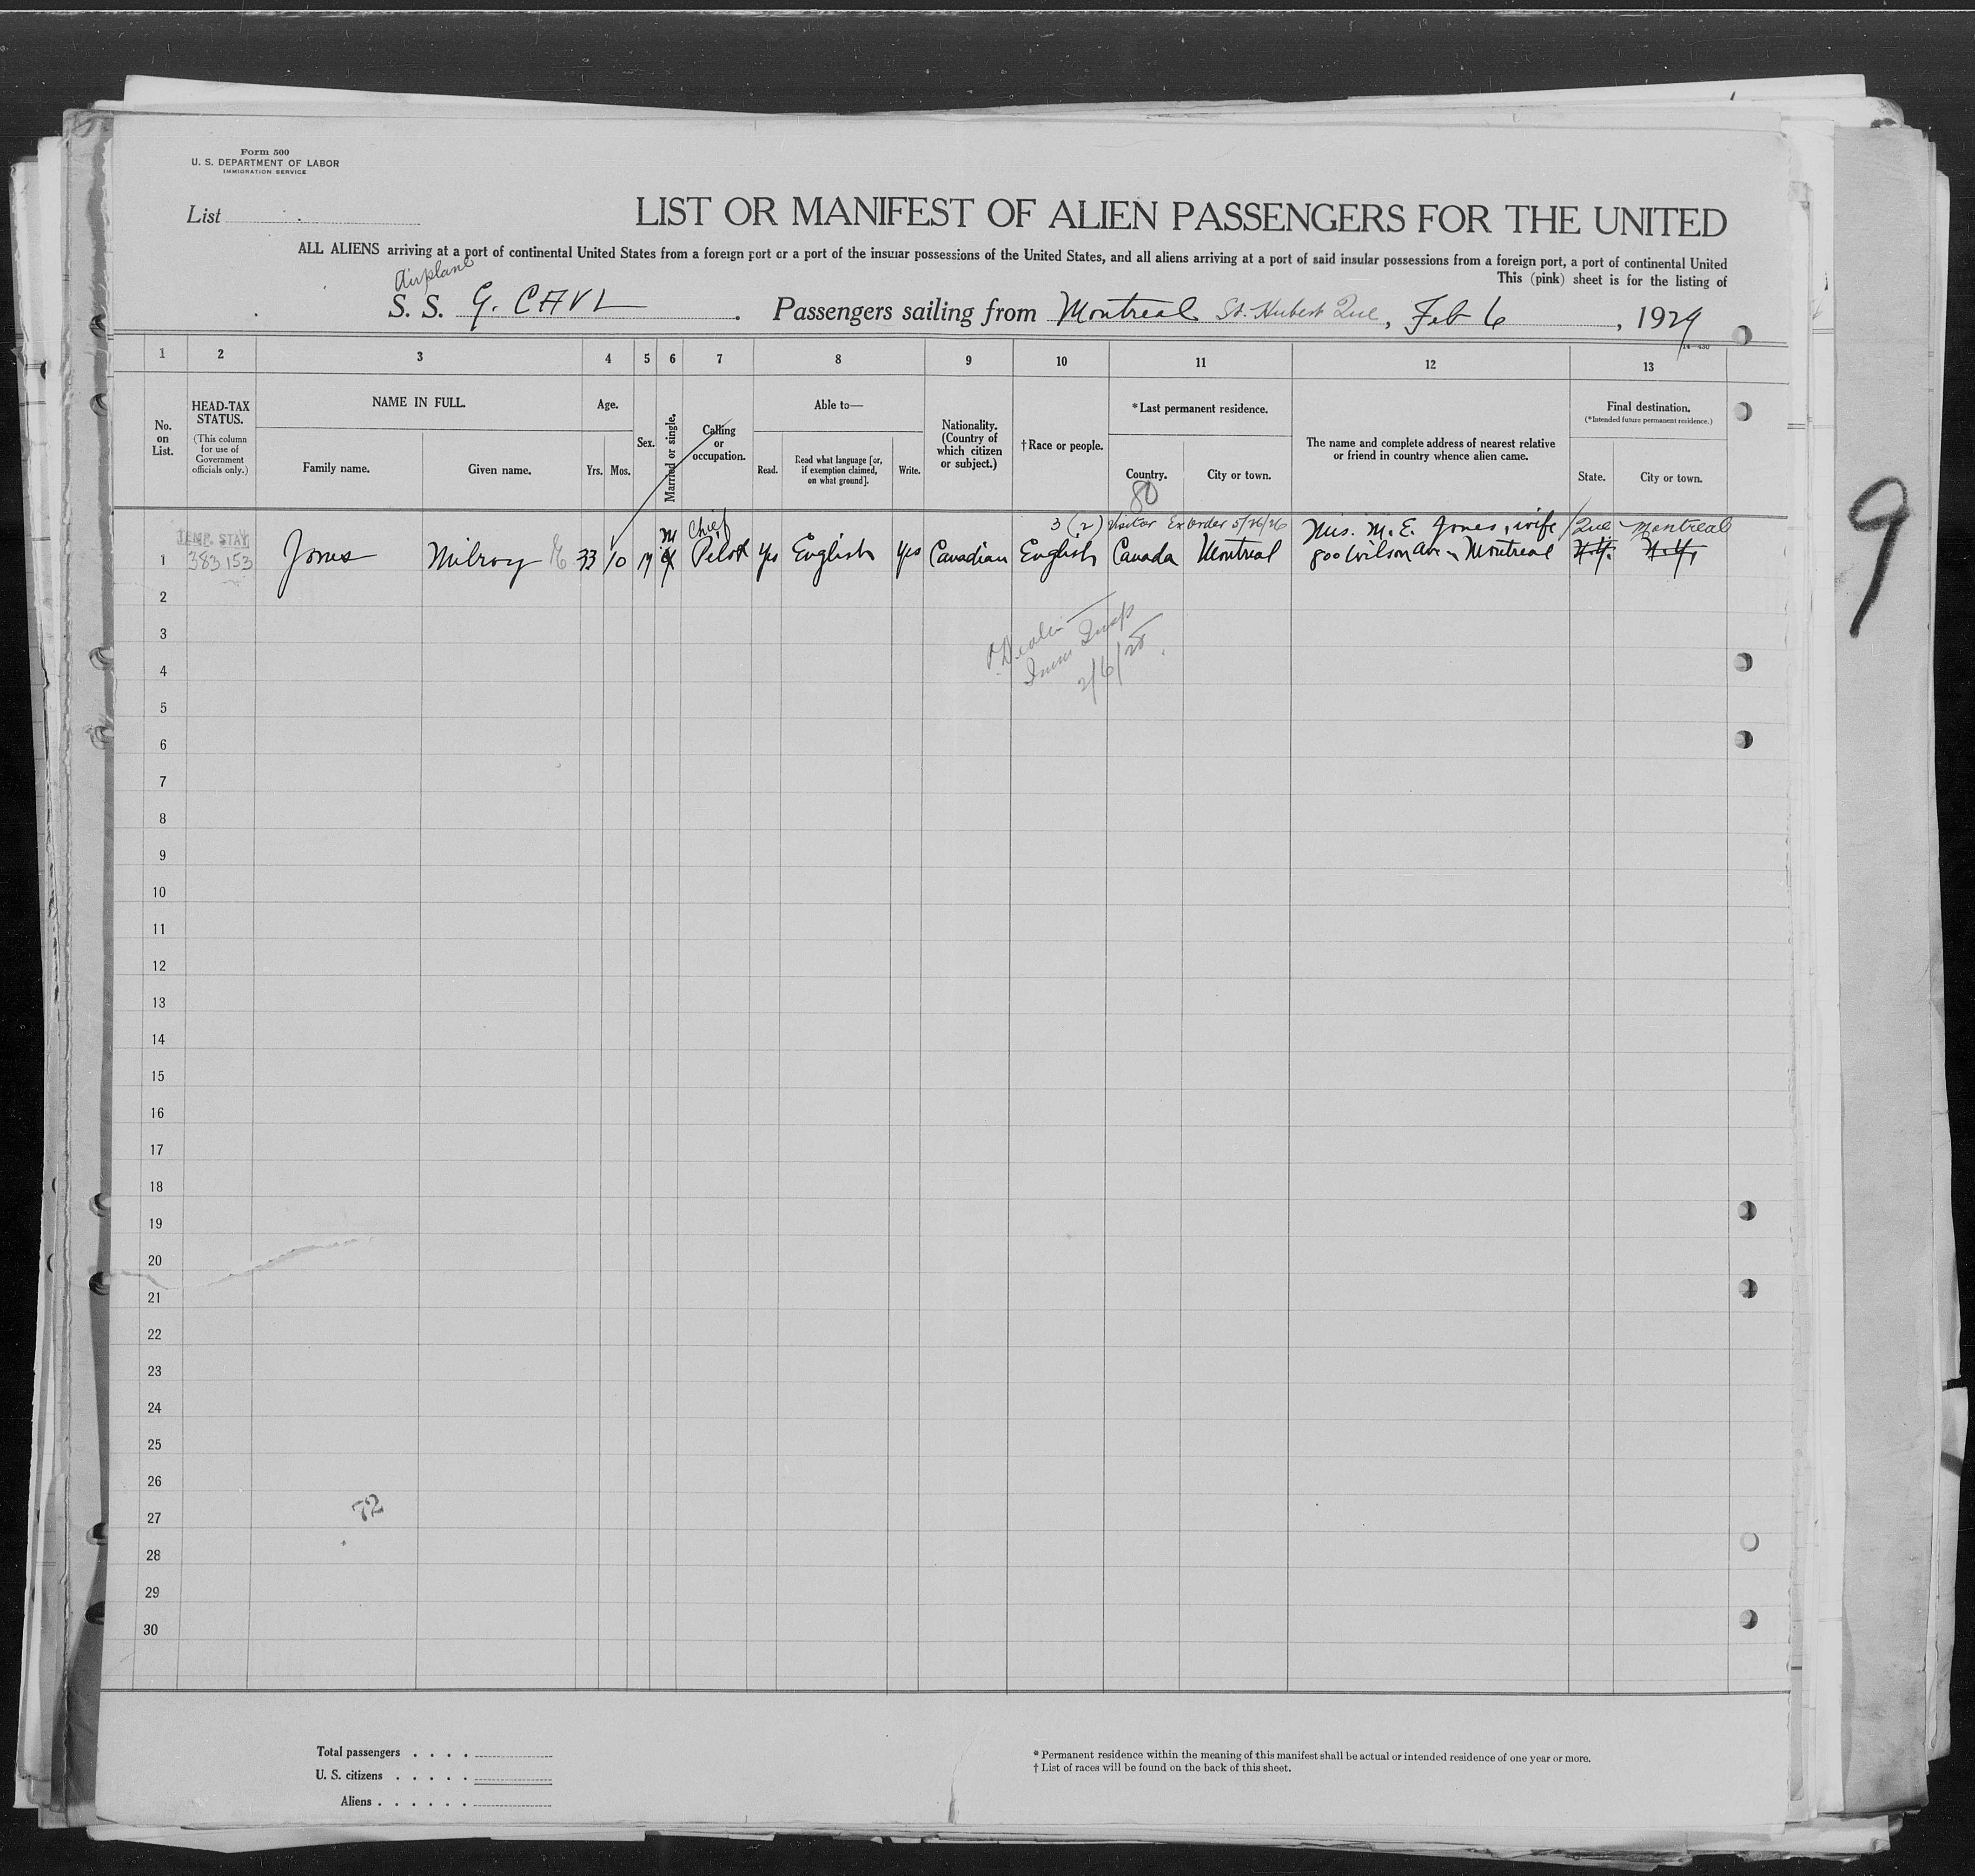 Form 500
U. S. DEPARTMENT OF LABOR
IMMIGRATION SERVICE
List
LIST OR MANIFEST OF ALIEN PASSENGERS FOR THE UNITED
ALL ALIENS arriving at a port of continental United States from a foreign port or a port of the insular possessions of the United States, and all aliens arriving at a port of said insular possessions from a foreign port, a port of continental United
This (pink) sheet is for the listing of
Airplane
S. S. G. CAVL . Passengers sailing from Montreal St. Hubert Que, Feb 6, 1929
14-430
1 2 3 4 5 6 7 8 9 10 11 12 13
No. on List.
HEAD-TAX STATUS.
(This column for use of Government officials only.)
NAME IN FULL.
Family name.
Given name.
Age.
Yrs.
Mos.
Sex.
Married or single.
Calling or occupation.
Able to—
Read.
Read what language [or, if exemption claimed, on what ground].
Write.
Nationality. (Country of which citizen or subject.)
†Race or people.
*Last permanent residence.
Country.
City or town.
80
The name and complete address of nearest relative or friend in country whence alien came.
Final destination.
(*Intended future permanent residence.)
State.
City or town.
M Chief 3 (2) Visitor Ex order 5/26/26 Mrs. M. E. Jones, wife Que Montreal
TEMP. STAY
1 383 153 Jones Milroy E 33 10 M Pilot Yes English Yes Canadian English Canada Montreal 800 Wilson Ave Montreal N.Y. N.Y.
2
3
Imm Insp
4
5
6
7
8
9
10
11
12
13
14
15
16
17
18
19
20
21
22
23
24
25
26
72
27
28
29
30
9
Total passengers . . . .
U. S. citizens . . . . .
Aliens . . . . . .
* Permanent residence within the meaning of this manifest shall be actual or intended residence of one year or more.
† List of races will be found on the back of this sheet.